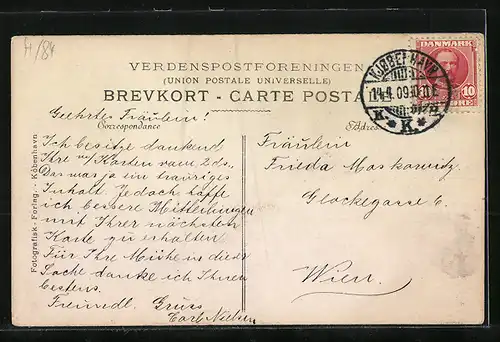 H/84
VERDENSPOSTFORENINGEN
(UNION POSTALE UNIVERSELLE)
BREVKORT - CARTE POSTA
DANMARK
10
ØRE
KJØBENHAVN
14.4.09.
K
Correspondance
Adres
Geehrtes Fräulein!
Ich besitze dankend
Ihre Karten vom 2 ds.
Das war ja ein trauriges
Inhalt. Jedoch hoffe
ich bessere Mitteilungen
mit Ihrer nächsten
Karte zu erhalten
Für Ihre Mühe in dieser
Sache danke ich Ihnen
bestens.
Freundl. Gruss
Carl Nielsen
Fräulein
Frieda Moskowitz
Glockegasse 6.
Wien.
Fotografisk - Forlag. - Köbenhavn